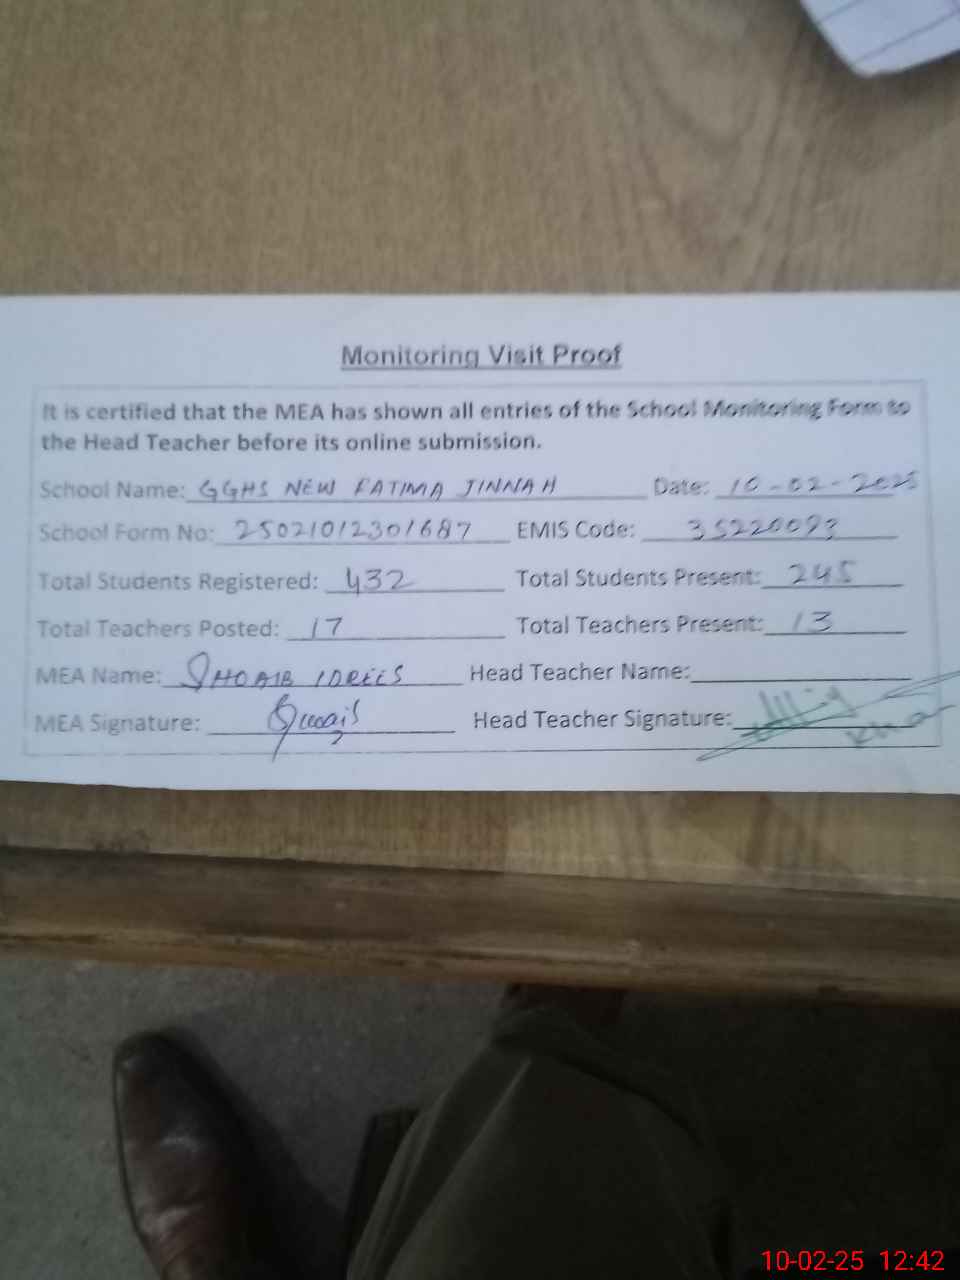 Monitoring Visit Proof
It is certified that the MEA has shown all entries of the School Monitoring Form to
the Head Teacher before its online submission.
School Name: GGHS NEW FATIMA JINNAH Date: 10-02-2025
School Form No: 25021012301687 EMIS Code: 35220093
Total Students Registered: 432 Total Students Present: 245
Total Teachers Posted: 17 Total Teachers Present: 13
MEA Name: SHOAIB IDREES Head Teacher Name:
MEA Signature: Head Teacher Signature:
10-02-25 12:42